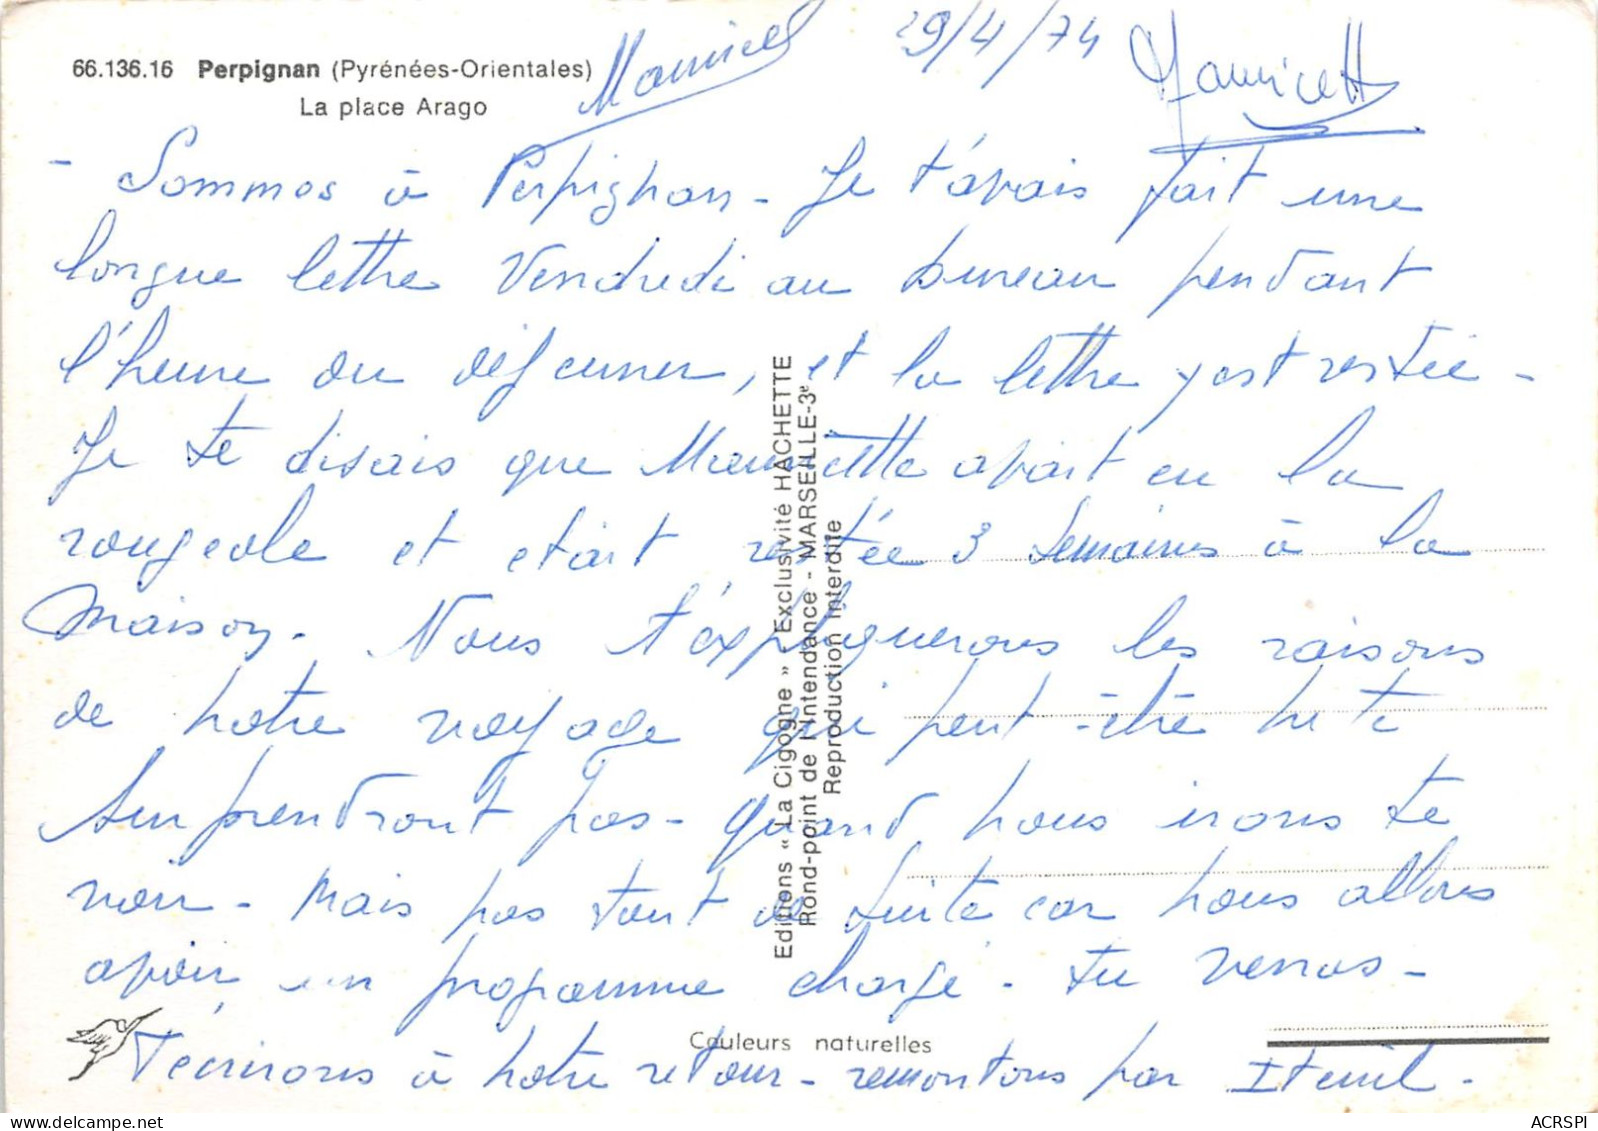 66.136.16 Perpignan (Pyrénées-Orientales)
La place Arago
29/4/74
- Sommes à Perpignan - Je t'avais fait une
longue lettre Vendredi au bureau pendant
l'heure du déjeuner, et la lettre y est restée -
Je te disais que Mauricette avait eu la
rougeole et etait restée 3 semaines à la
maison. Nous t'expliquerons les raisons
de notre voyage qui peut-être ne te
surprendront pas - quand nous irons te
voir - Mais pas tout de suite car nous allons
avoir un programme chargé - tu verras -
T'écrirons à notre retour - remontons par
Editions « La Cigogne » - Exclusivité HACHETTE
Rond-point de l'Intendance - MARSEILLE-3e
Reproduction Interdite
Couleurs naturelles
ACRSPI